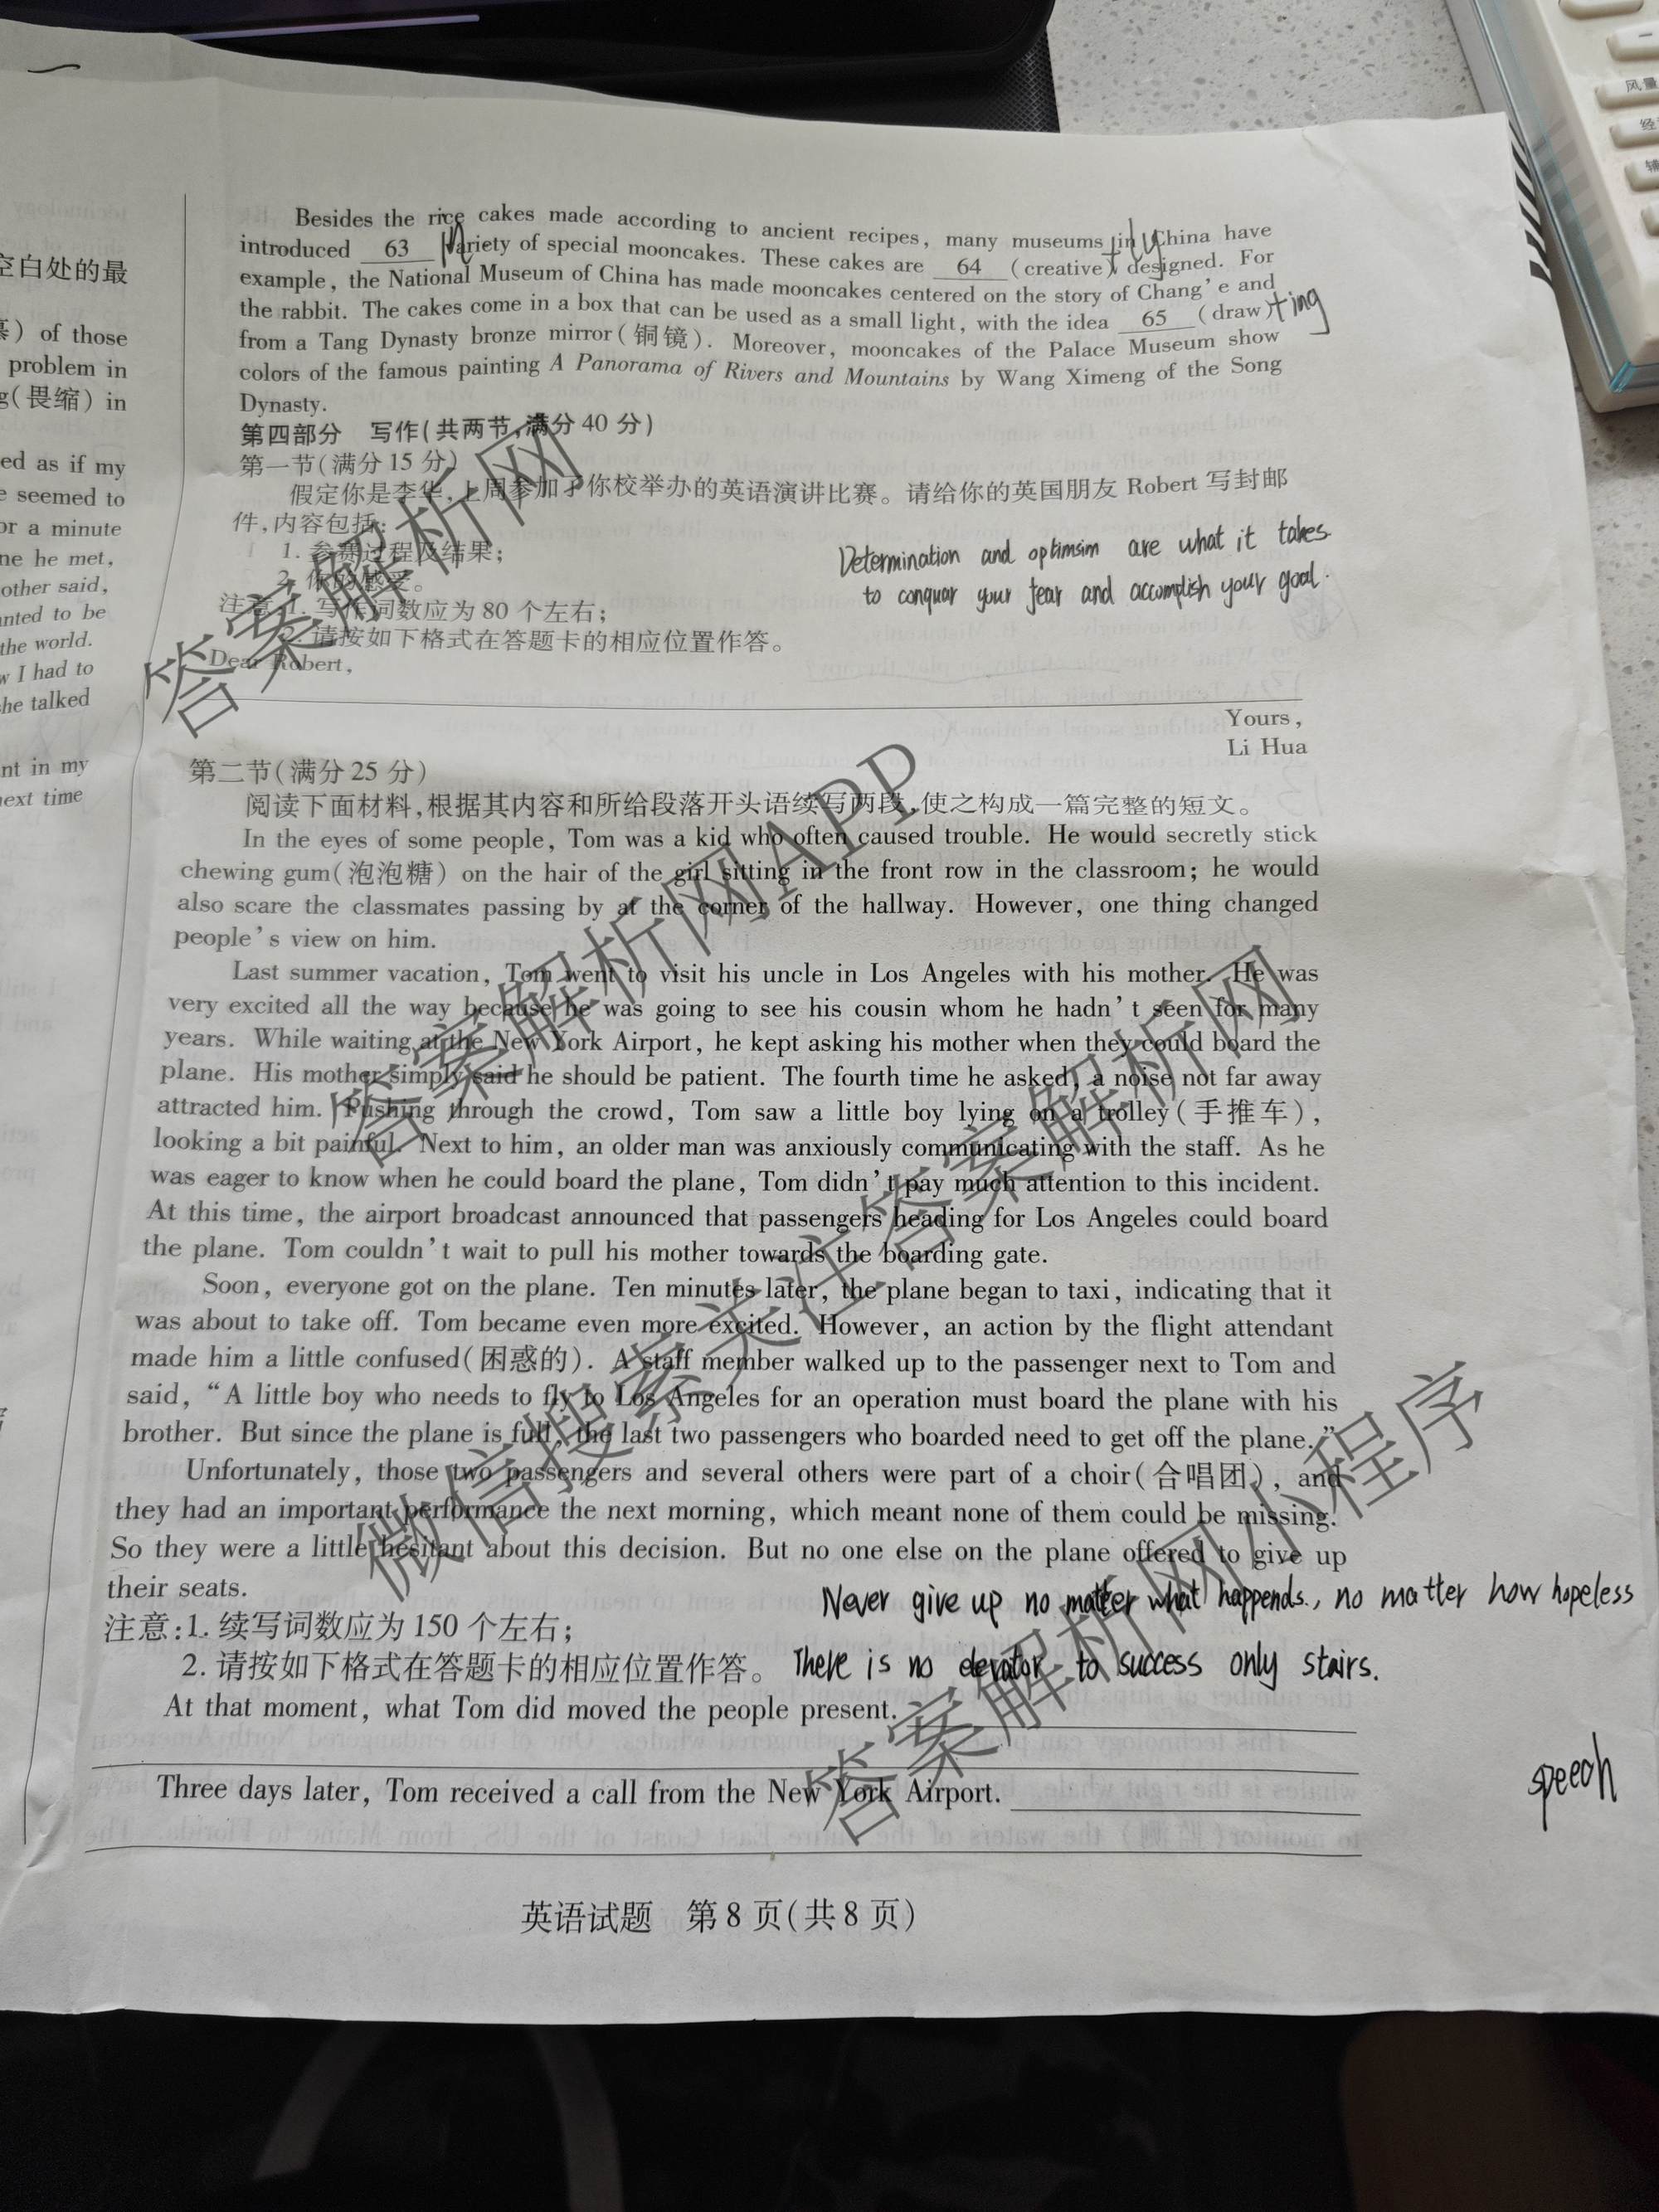 空白处的最
of those
problem in
(畏缩) in
ed as if my
e seemed to
or a minute
ne he met,
other said,
anted to be
the world.
w I had to
she talked
nt in my
next time
Besides the rice cakes made according to ancient recipes, many museums in China have
introduced 63 variety of special mooncakes. These cakes are 64 (creative) designed. For
example, the National Museum of China has made mooncakes centered on the story of Chang'e and
the rabbit. The cakes come in a box that can be used as a small light, with the idea 65 (draw)
from a Tang Dynasty bronze mirror(铜镜). Moreover, mooncakes of the Palace Museum show
colors of the famous painting A Panorama of Rivers and Mountains by Wang Ximeng of the Song
Dynasty.
ting
第四部分 写作(共两节,满分40分)
第一节(满分15分)
假定你是李华,上周参加了你校举办的英语演讲比赛。请给你的英国朋友 Robert 写封邮
件,内容包括:
1. 参赛过程及结果;
2. 你的感受。
Determination and optimsim are what it takes
to conquar your fear and accomplish your goal.
注意:1. 写作词数应为80个左右;
2. 请按如下格式在答题卡的相应位置作答。
Dear Robert,
Yours,
Li Hua
第二节(满分25分)
阅读下面材料,根据其内容和所给段落开头语续写两段,使之构成一篇完整的短文。
In the eyes of some people, Tom was a kid who often caused trouble. He would secretly stick
chewing gum(泡泡糖) on the hair of the girl sitting in the front row in the classroom; he would
also scare the classmates passing by at the corner of the hallway. However, one thing changed
people's view on him.
Last summer vacation, Tom went to visit his uncle in Los Angeles with his mother. He was
very excited all the way because he was going to see his cousin whom he hadn't seen for many
years. While waiting at the New York Airport, he kept asking his mother when they could board the
plane. His mother simply said he should be patient. The fourth time he asked, a noise not far away
attracted him. Pushing through the crowd, Tom saw a little boy lying on a trolley(手推车),
looking a bit painful. Next to him, an older man was anxiously communicating with the staff. As he
was eager to know when he could board the plane, Tom didn't pay much attention to this incident.
At this time, the airport broadcast announced that passengers heading for Los Angeles could board
the plane. Tom couldn't wait to pull his mother towards the boarding gate.
Soon, everyone got on the plane. Ten minutes later, the plane began to taxi, indicating that it
was about to take off. Tom became even more excited. However, an action by the flight attendant
made him a little confused(困惑的). A staff member walked up to the passenger next to Tom and
said, "A little boy who needs to fly to Los Angeles for an operation must board the plane with his
brother. But since the plane is full, the last two passengers who boarded need to get off the plane."
Unfortunately, those two passengers and several others were part of a choir(合唱团), and
they had an important performance the next morning, which meant none of them could be missing.
So they were a little hesitant about this decision. But no one else on the plane offered to give up
their seats.
Never give up no matter what happends., no matter how hopeless
注意:1. 续写词数应为150个左右;
2. 请按如下格式在答题卡的相应位置作答。
There is no elevator to success only stairs.
At that moment, what Tom did moved the people present.
Three days later, Tom received a call from the New York Airport.
speech
英语试题 第8页(共8页)
答案解析网
答案解析网APP
微信搜索关注答案解析网
答案解析网小程序
风量